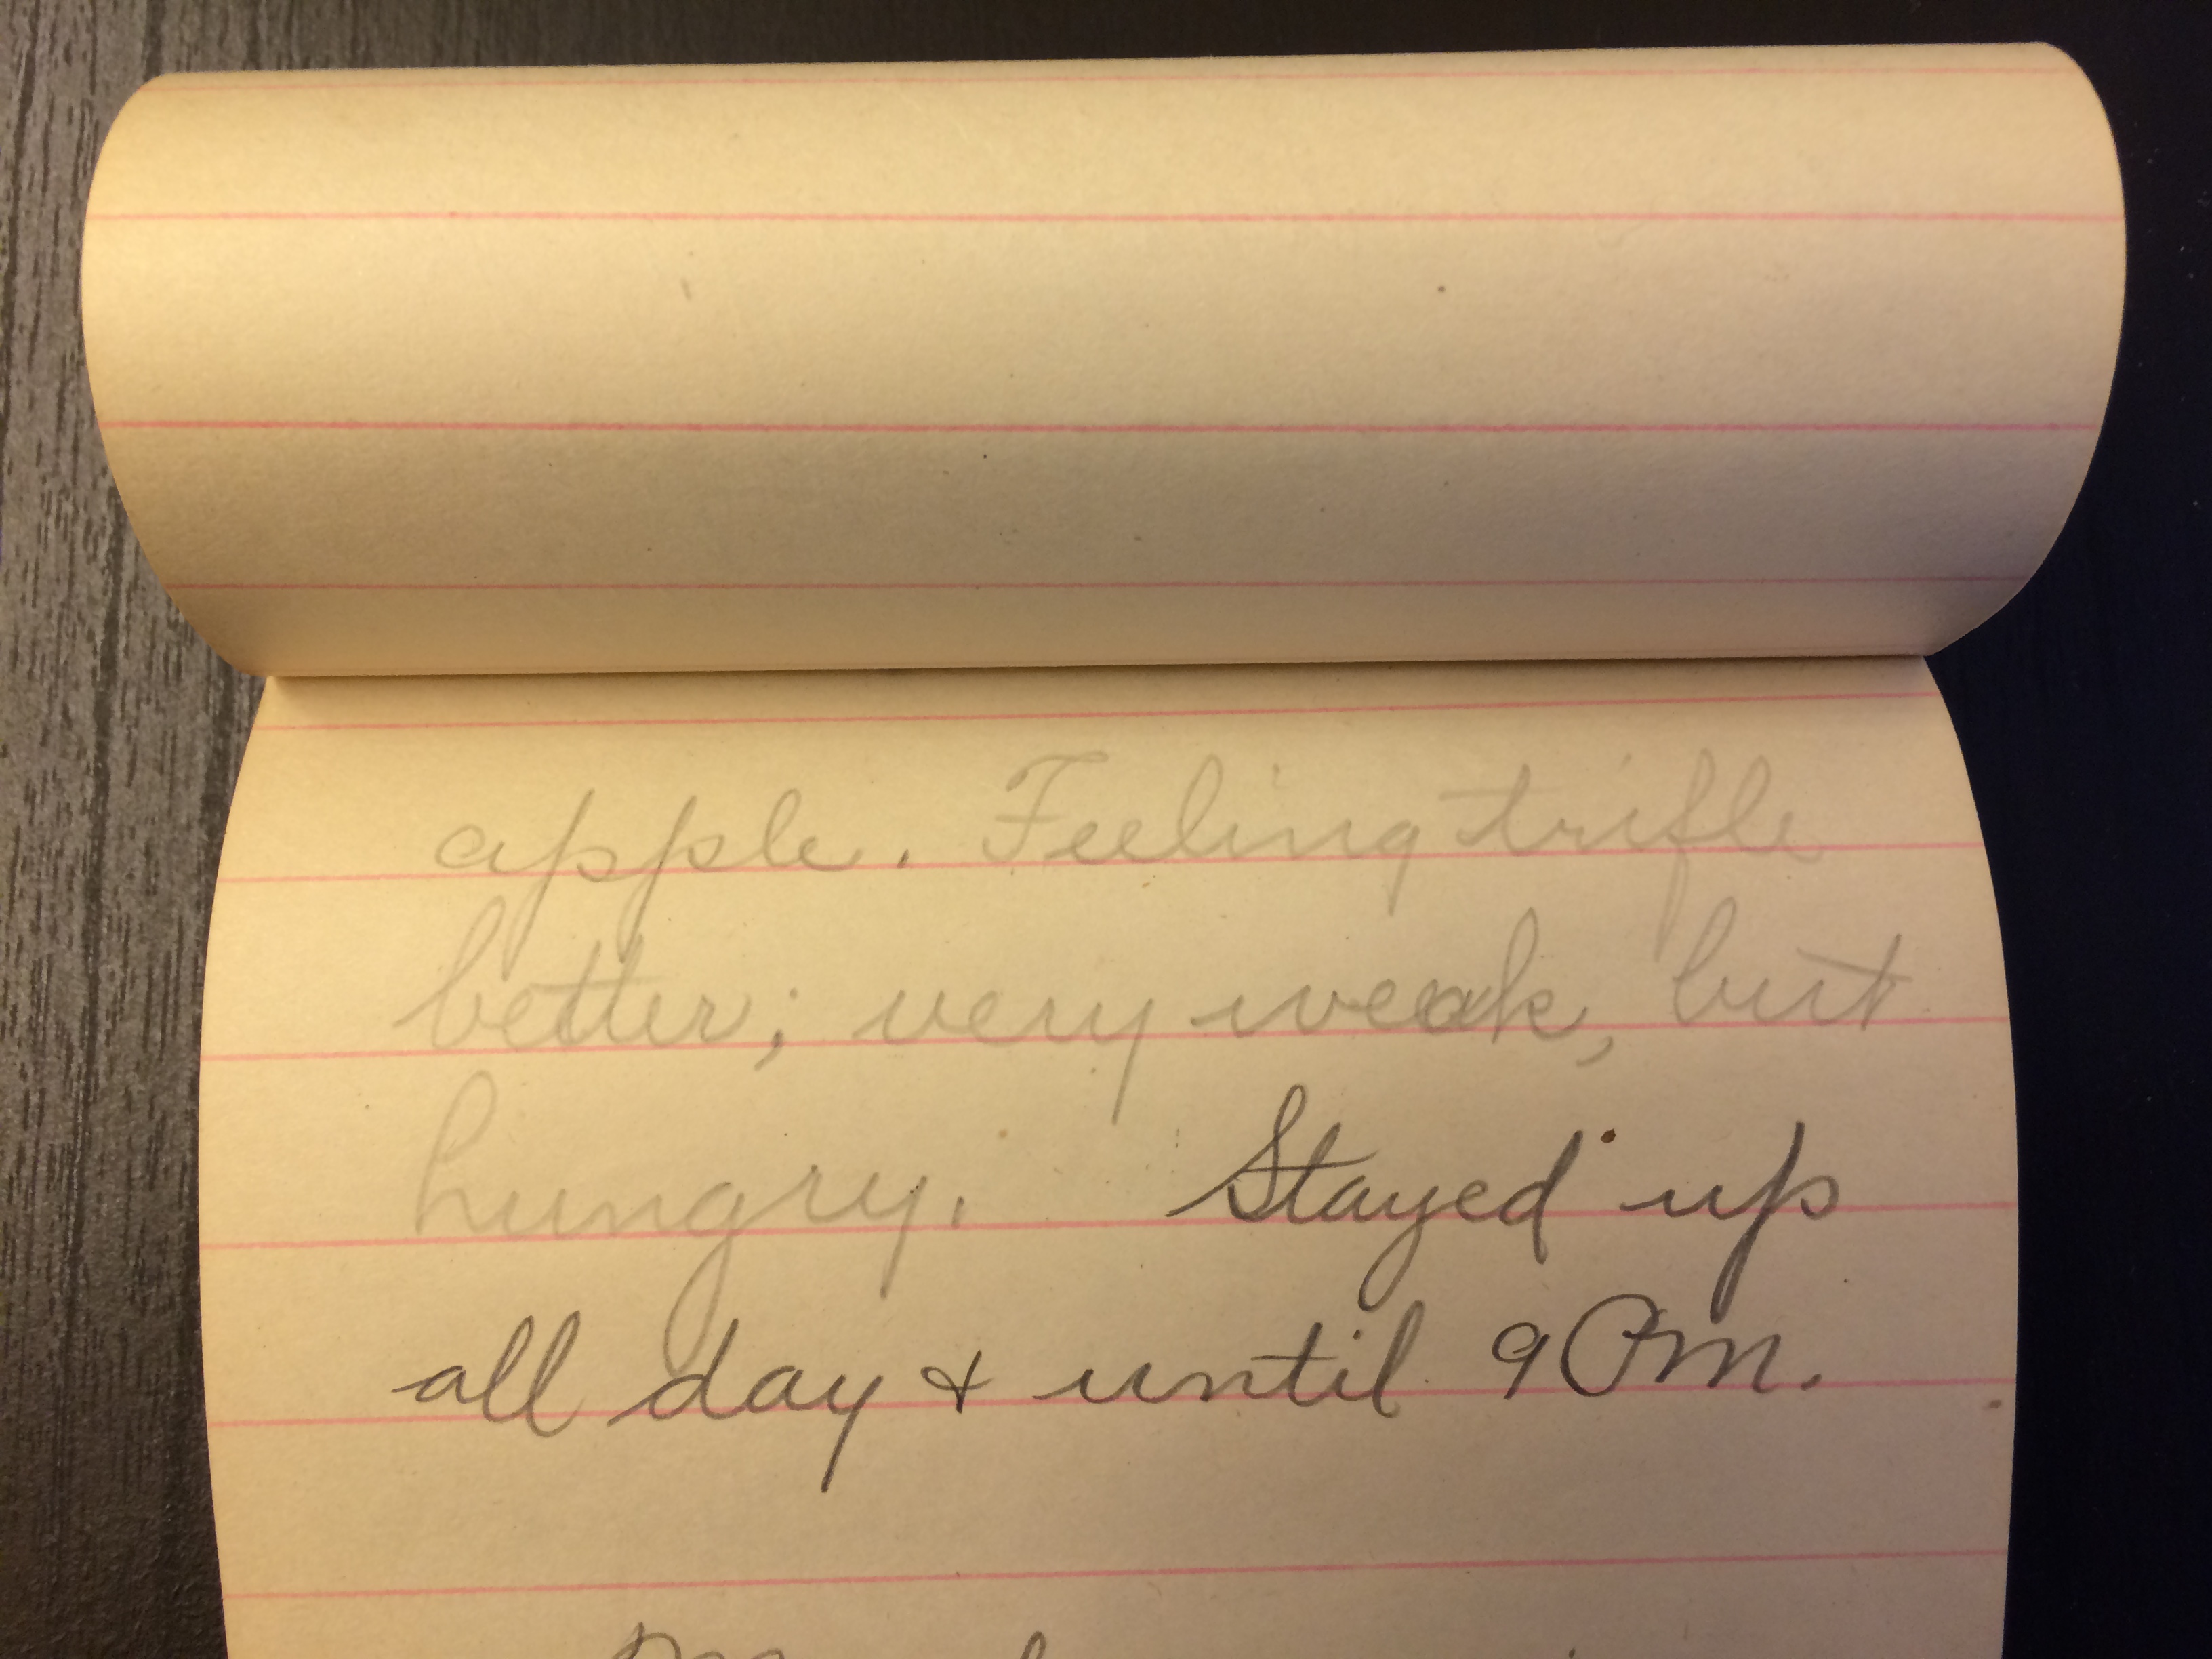 apple. Feeling trifle
better; very weak, but
hungry. Stayed up
all day & until 9 PM.